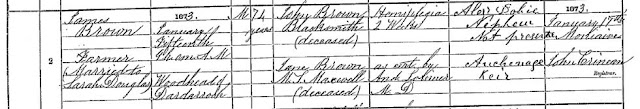 James Brown
Farmer
(Married to Sarah Douglas)
2
1873.
January
Fifteenth
Woodhead of
Dardarroch
M
74
years
John Brown
Blacksmith
(deceased)
Jane Brown
M.S. Maxwell
(deceased)
Hemiplegia
2 Weeks
as cert. by
M D
Nephew
Not present
Auchenage
Keir
1873.
January 17th
Moniaive
John Crierson
Registrar.